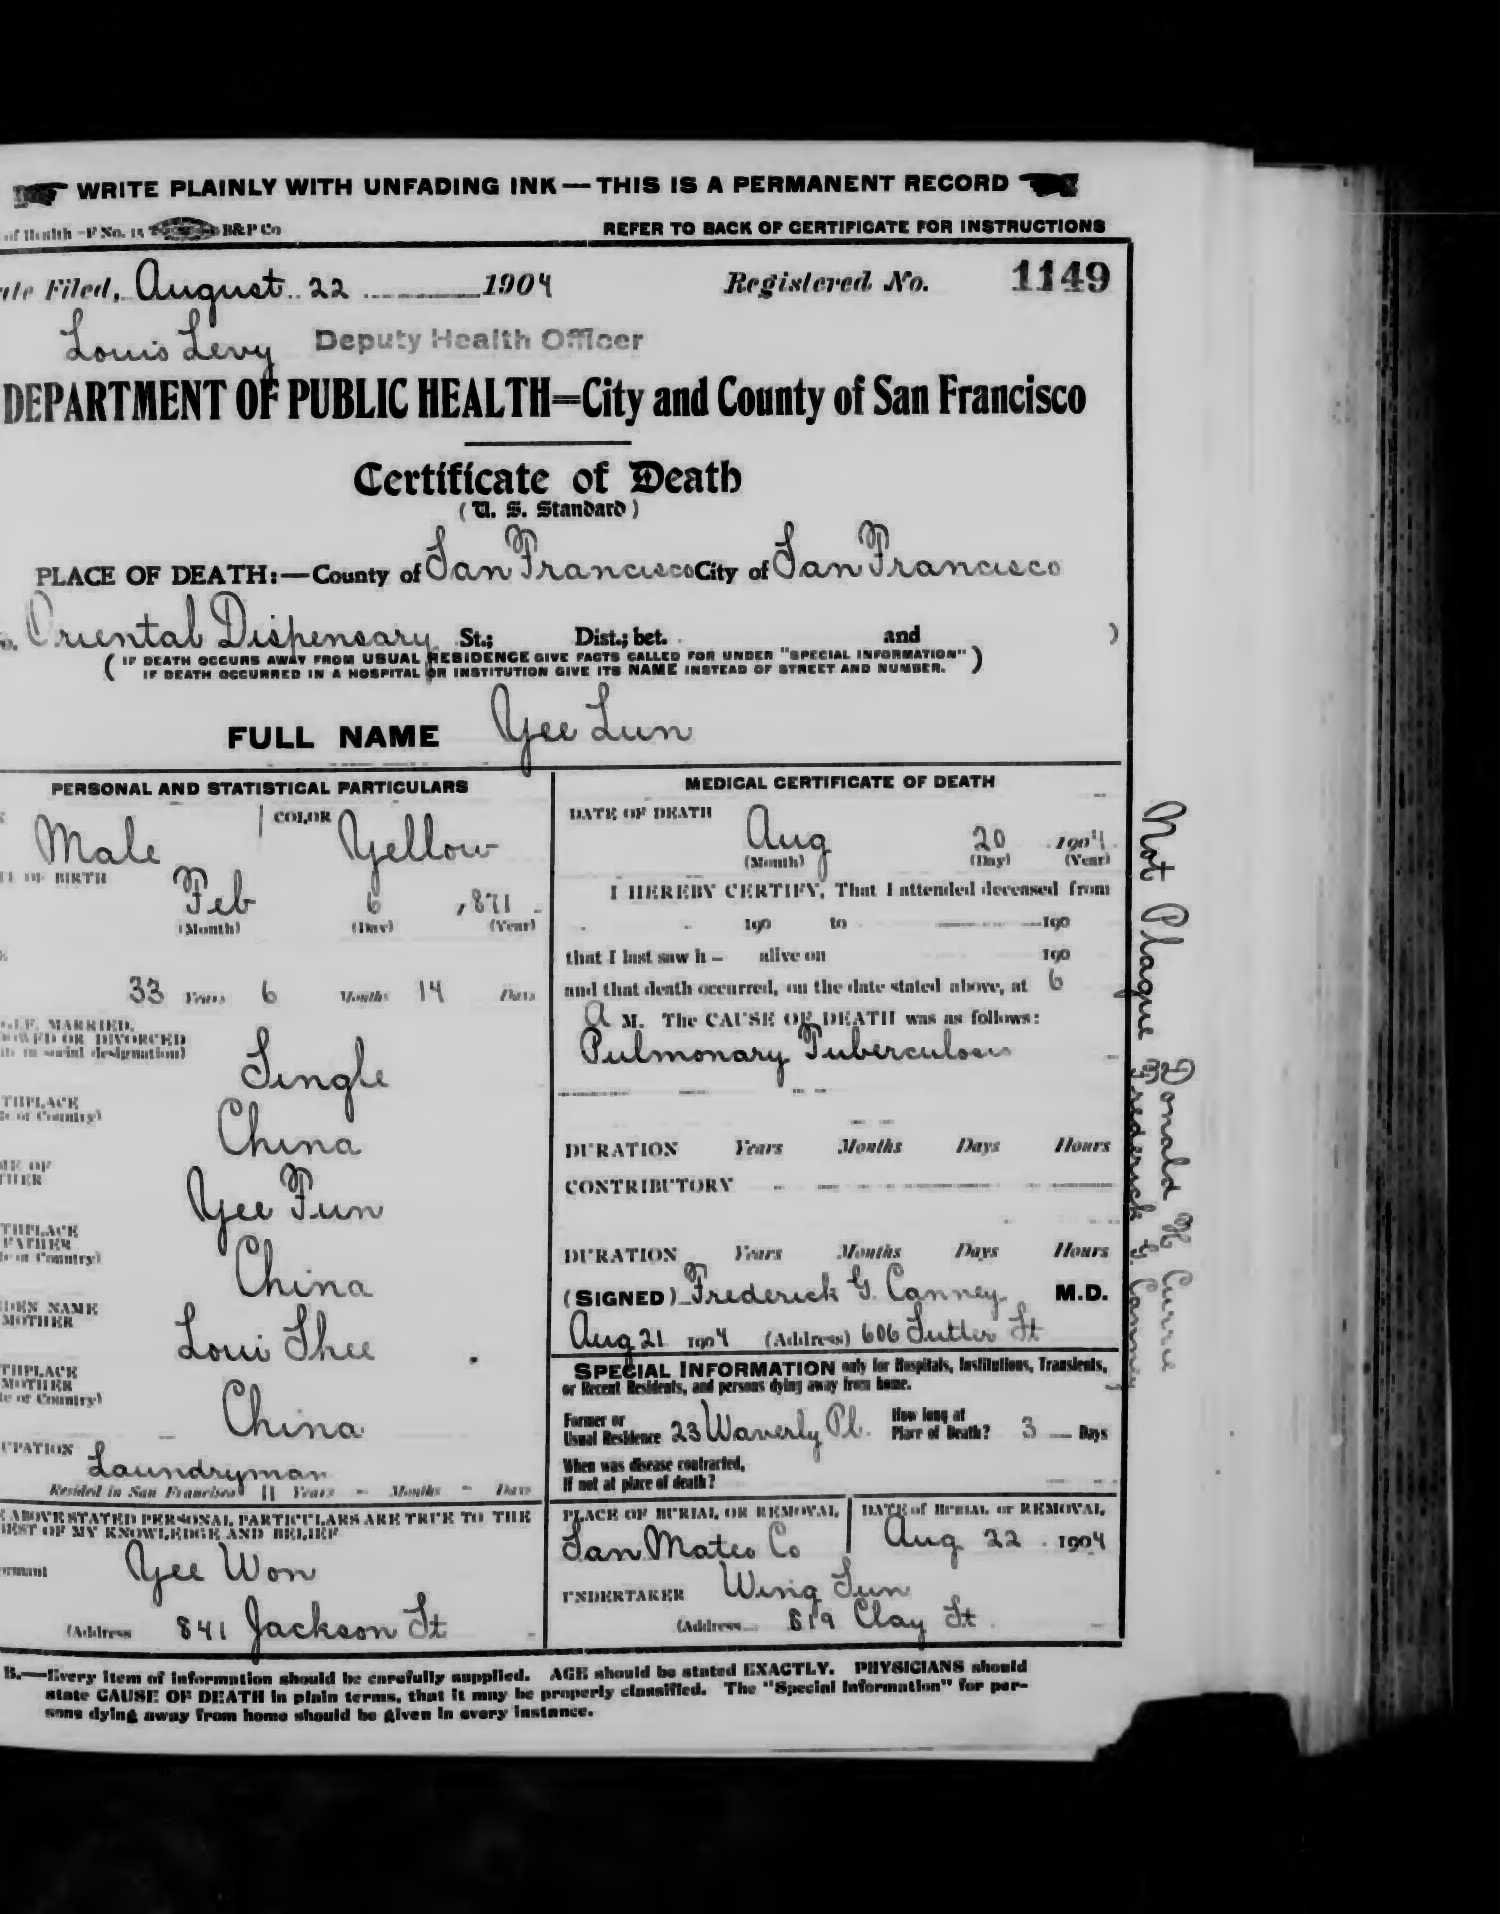 WRITE PLAINLY WITH UNFADING INK—THIS IS A PERMANENT RECORD
of Health—F No. 15 B&P Co REFER TO BACK OF CERTIFICATE FOR INSTRUCTIONS
ate Filed, August 22 1904 Registered No. 1149
Louis Levy Deputy Health Officer
DEPARTMENT OF PUBLIC HEALTH=City and County of San Francisco
Certificate of Death
(U. S. Standard)
PLACE OF DEATH:—County of San Francisco City of San Francisco
o. Oriental Dispensary St.; Dist.; bet. and )
(IF DEATH OCCURS AWAY FROM USUAL RESIDENCE GIVE FACTS CALLED FOR UNDER "SPECIAL INFORMATION"
IF DEATH OCCURRED IN A HOSPITAL OR INSTITUTION GIVE ITS NAME INSTEAD OF STREET AND NUMBER.)
FULL NAME Yee Lun
PERSONAL AND STATISTICAL PARTICULARS
Male COLOR Yellow
TE OF BIRTH
Feb 6 1871
(Month) (Day) (Year)
33 Years 6 Months 14 Days
GLE, MARRIED,
OWED OR DIVORCED
ite in social designation)
Single
THPLACE
te or Country)
China
ME OF
THER
Yee Fun
THPLACE
FATHER
te or Country)
China
DEN NAME
MOTHER
Loui Shee
THPLACE
MOTHER
te or Country)
China
UPATION Laundryman
Resided in San Francisco 11 Years - Months - Days
E ABOVE STATED PERSONAL PARTICULARS ARE TRUE TO THE
BEST OF MY KNOWLEDGE AND BELIEF
ormant Yee Won
(Address 841 Jackson St
MEDICAL CERTIFICATE OF DEATH
DATE OF DEATH
Aug 20 1904
(Month) (Day) (Year)
I HEREBY CERTIFY, That I attended deceased from
190 to 190
that I last saw h – alive on 190
and that death occurred, on the date stated above, at 6
A M. The CAUSE OF DEATH was as follows:
Pulmonary Tuberculosis
DURATION Years Months Days Hours
CONTRIBUTORY
DURATION Years Months Days Hours
(SIGNED) Frederick G. Canney M.D.
Aug 21 1904 (Address) 606 Sutter St
SPECIAL INFORMATION only for Hospitals, Institutions, Transients,
or Recent Residents, and persons dying away from home.
Former or
Usual Residence 23 Waverly Pl. How long at
Place of Death? 3 Days
When was disease contracted,
If not at place of death?
PLACE OF BURIAL OR REMOVAL DATE of BURIAL or REMOVAL
San Mateo Co Aug 22 1904
UNDERTAKER Wing Sun
(Address 819 Clay St
B.—Every item of information should be carefully supplied. AGE should be stated EXACTLY. PHYSICIANS should
state CAUSE OF DEATH in plain terms, that it may be properly classified. The "Special Information" for per-
sons dying away from home should be given in every instance.
Not Plague
Donald H Currie
Frederick G. Canney